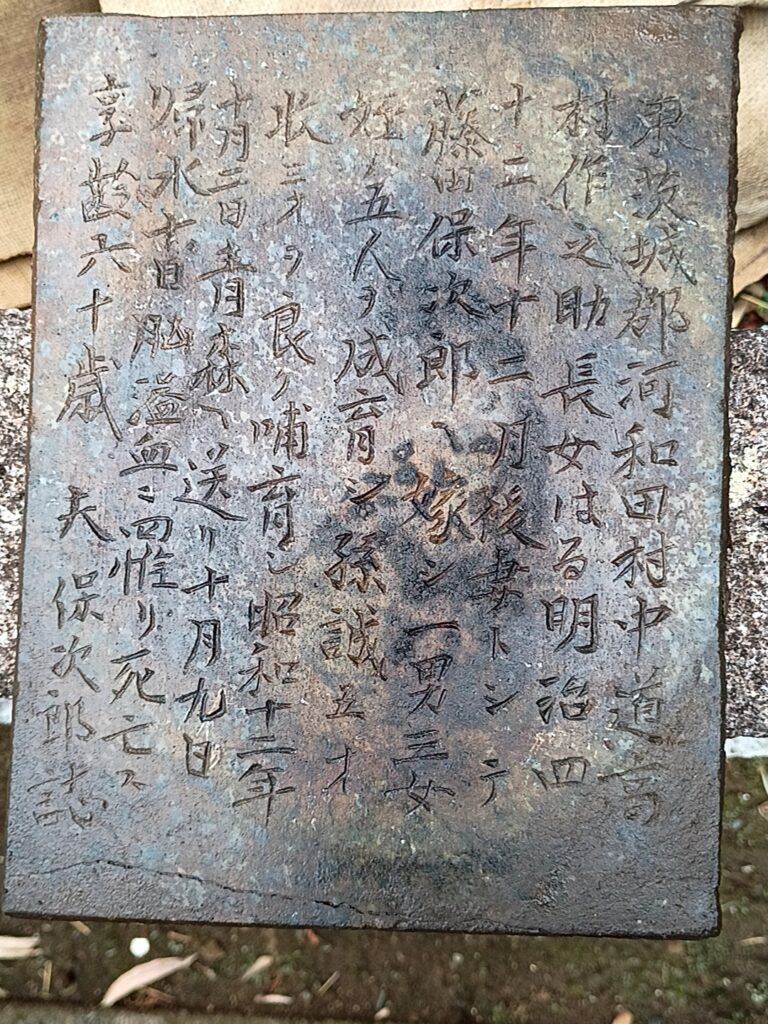 東茨城郡河和田村中道高
村作之助 長女はる明治四
十二年十二月後妻トシテ
藤田保次郎ヘ嫁シ一男三女
姪ノ五人ヲ成育シ孫誠五才
収三才ヲ良ク哺育シ昭和十二年
十月二日青森ヘ送リ十月九日
リ帰水十日脳溢血ニ罹リ死亡ス
享齢六十歳 夫 保次郎誌